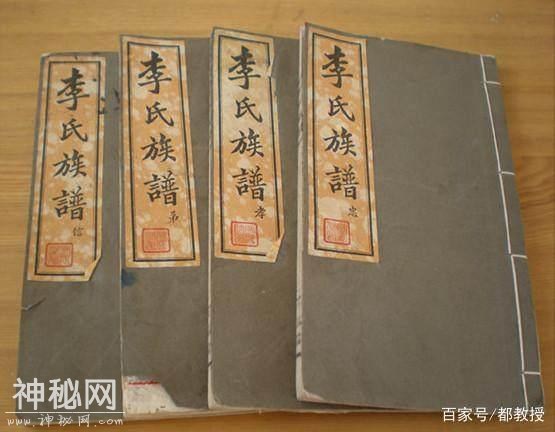 李氏族譜 信
李氏族譜 弟
李氏族譜 孝
李氏族譜 忠
神秘网
www.神秘网.com
百家号/都教授